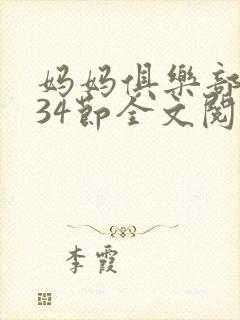 妈妈俱樂部
34節全文閱
李霞